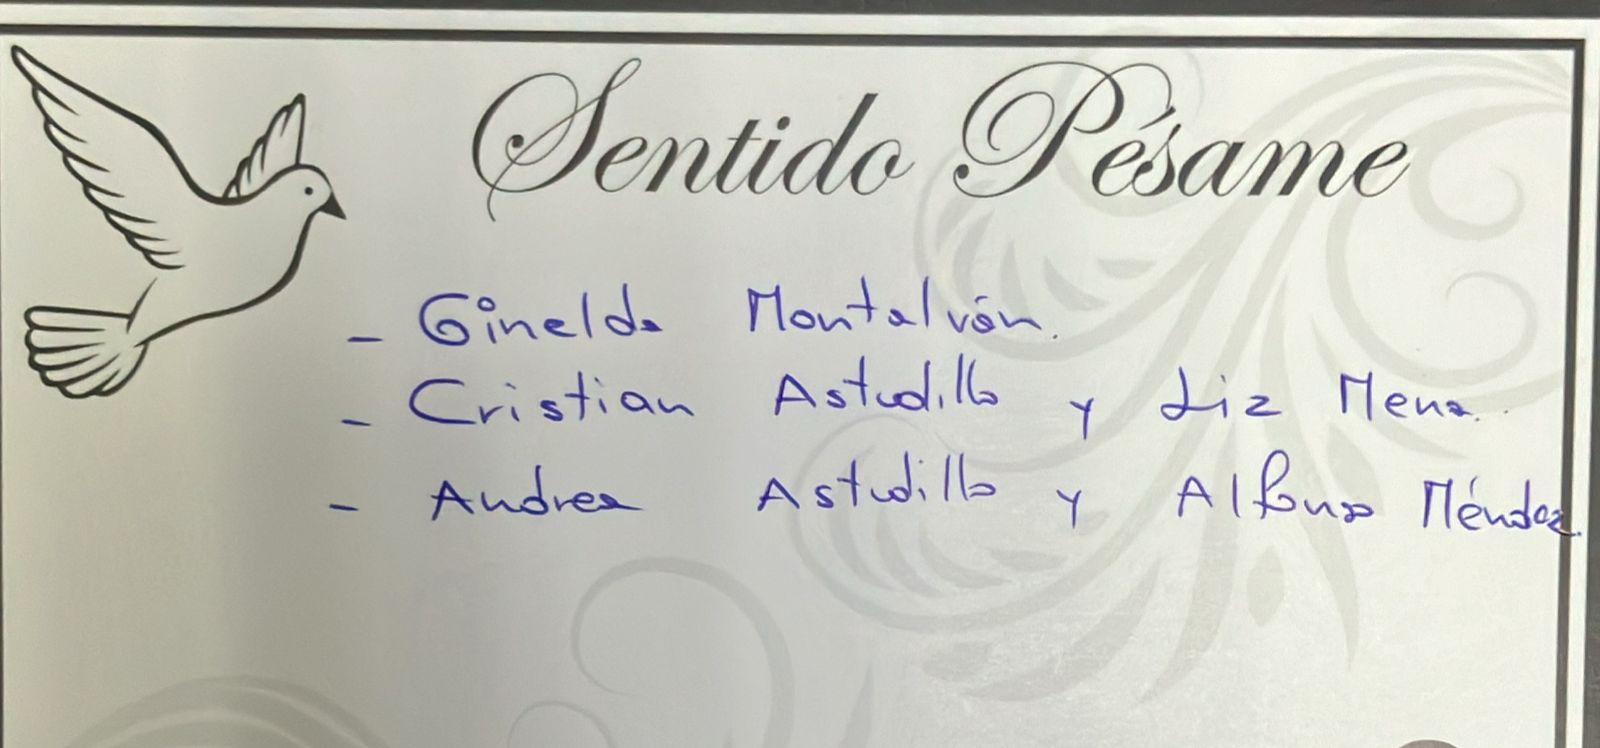 Sentido Pésame
- Ginelda Montalván.
- Cristian Astudillo y Liz Mena.
- Andrea Astudillo y Alfonso Méndez.